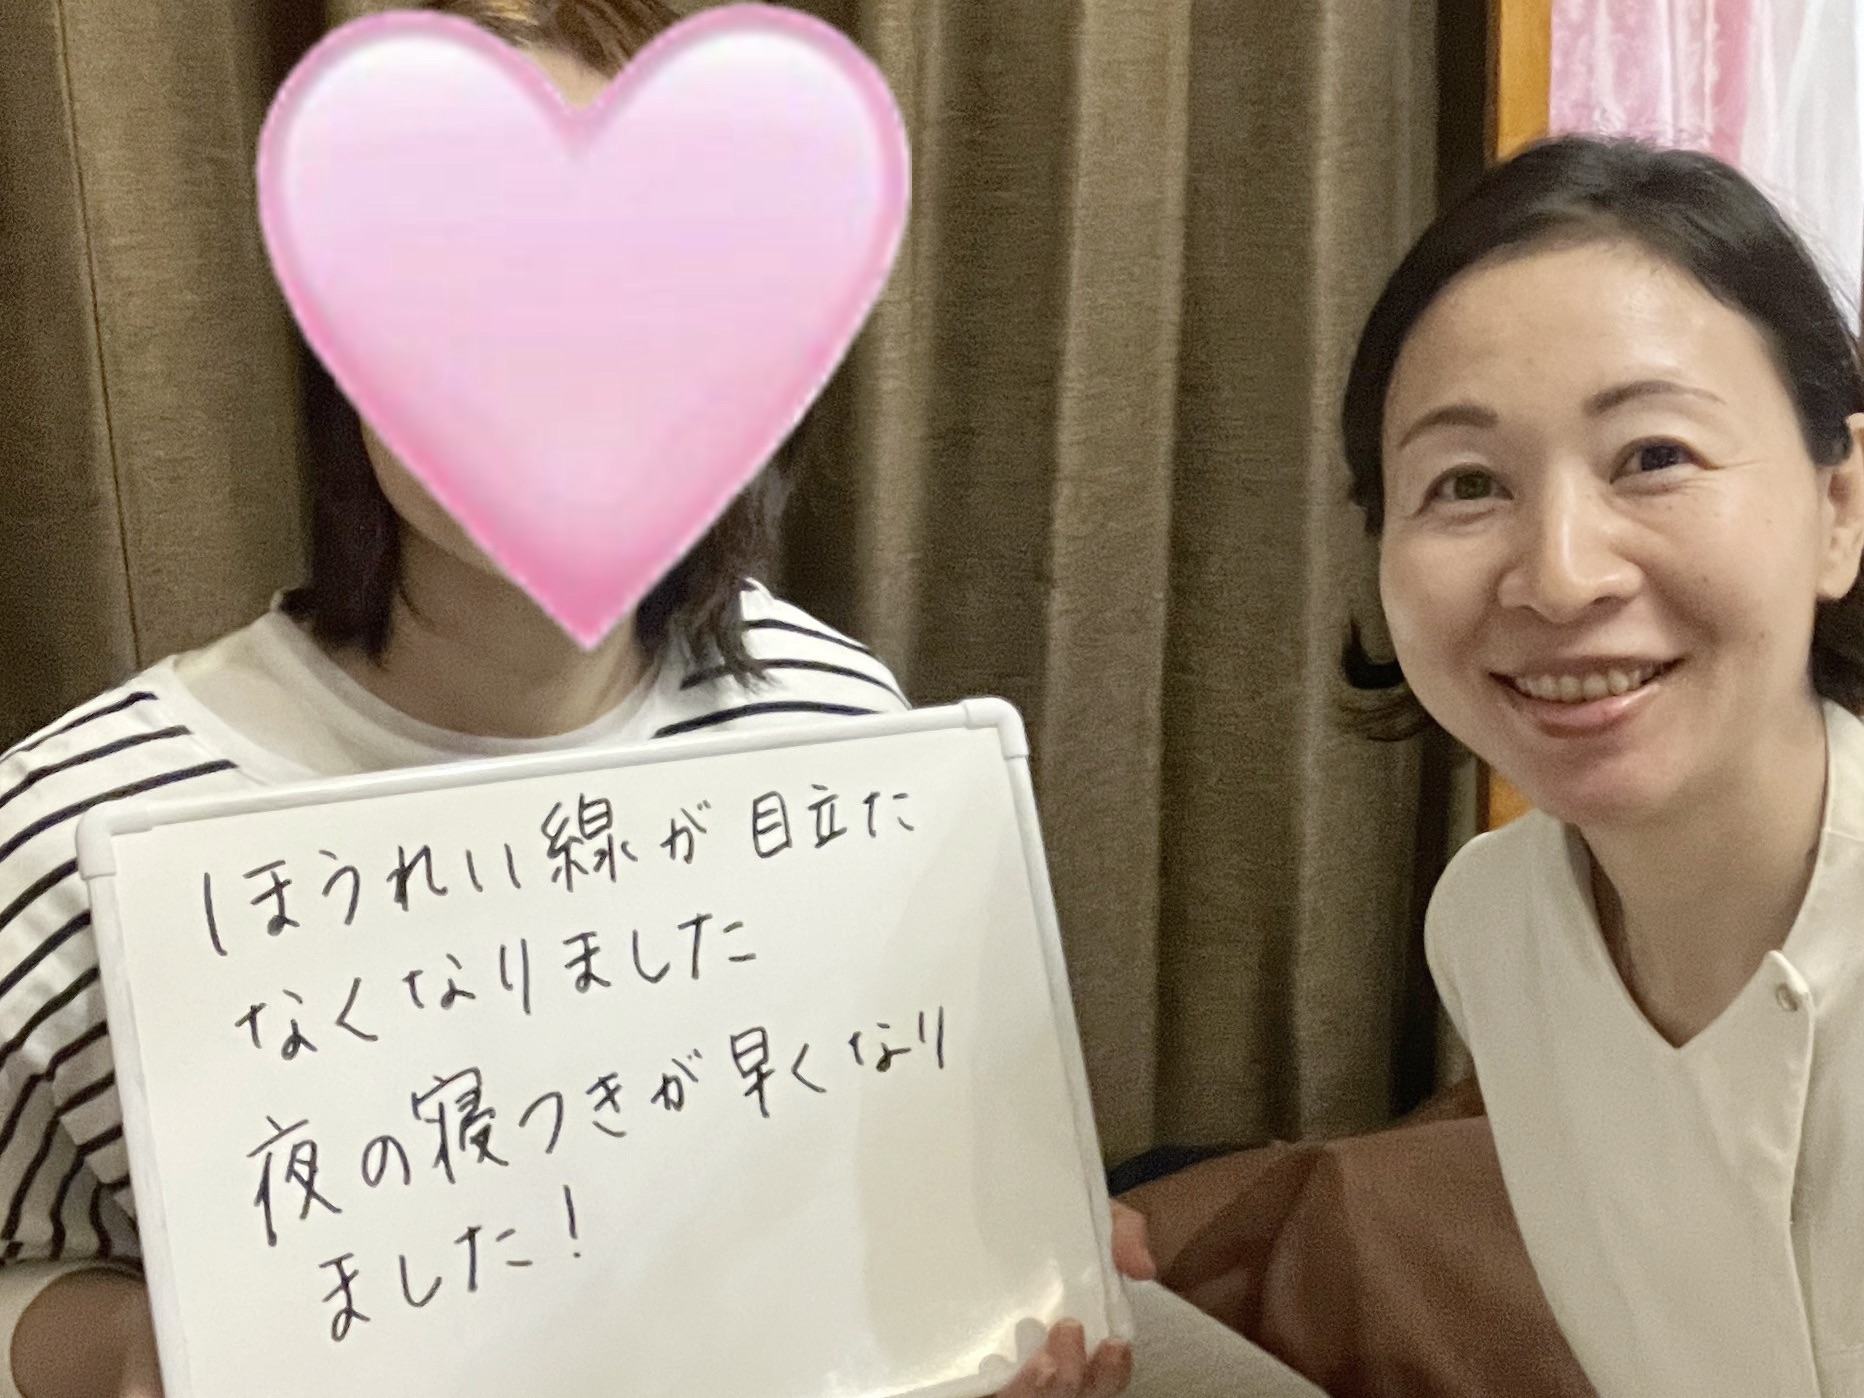 ほうれい線が目立た
なくなりました
夜の寝つきが早くなり
ました!